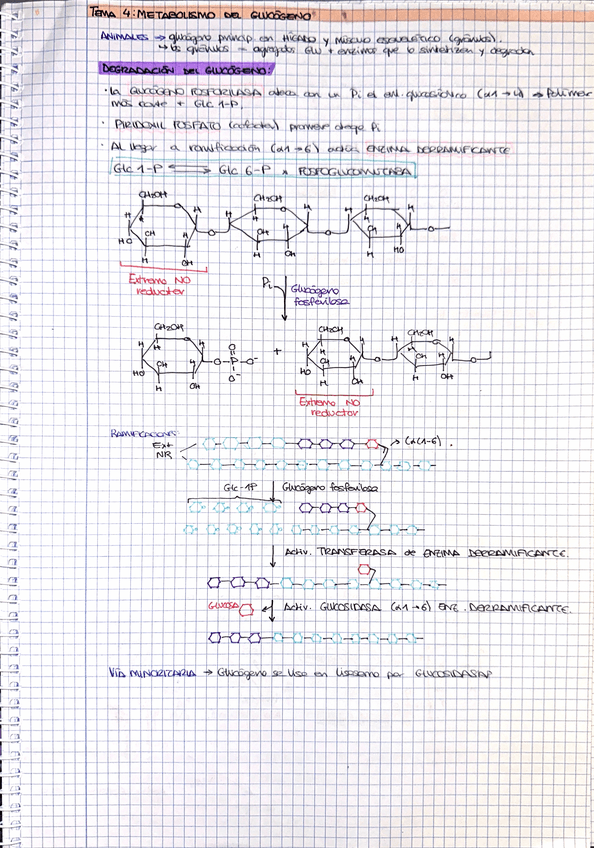 TEMA 4: METABOLISMO DEL GLUCÓGENO
ANIMALES → glucógeno princip. en Hígado y músculo esquelético (gránulos).
↳ los gránulos = agregados Glu + enzimas que lo sintetizan y degradan
DEGRADACIÓN DEL GLUCÓGENO:
· La GLUCÓGENO FOSFORILASA ataca con un Pi el enl. glucosídico (α1→4) → Polímero
más corto + Glc 1-P.
· PIRIDOXIL FOSFATO (cofactor) promueve ataque Pi
· Al llegar a ramificación (α1→6) actúa ENZIMA DERRAMIFICANTE
Glc 1-P ⇌ Glc 6-P FOSFOGLUCOMUTASA
CH2OH CH2OH CH2OH
H H H H H H
O O O
OH OH OH
HO H OH H OH H HO
Extremo NO
reductor
Pi
Glucógeno
fosforilasa
CH2OH O CH2OH CH2OH
H H O-P-O- + H H H
HO OH O- HO OH OH
H OH H OH H OH
Extremo NO
reductor
RAMIFICACIONES
Ext
NR
→ (α1-6).
Glc-1P Glucógeno fosforilasa
Activ. TRANSFERASA de ENZIMA DERRAMIFICANTE.
GLUCOSA Activ. GLUCOSIDASA (α1→6) ENZ. DERRAMIFICANTE.
VÍA MINORITARIA → Glucógeno se lisa en lisosoma por GLUCOSIDASAS